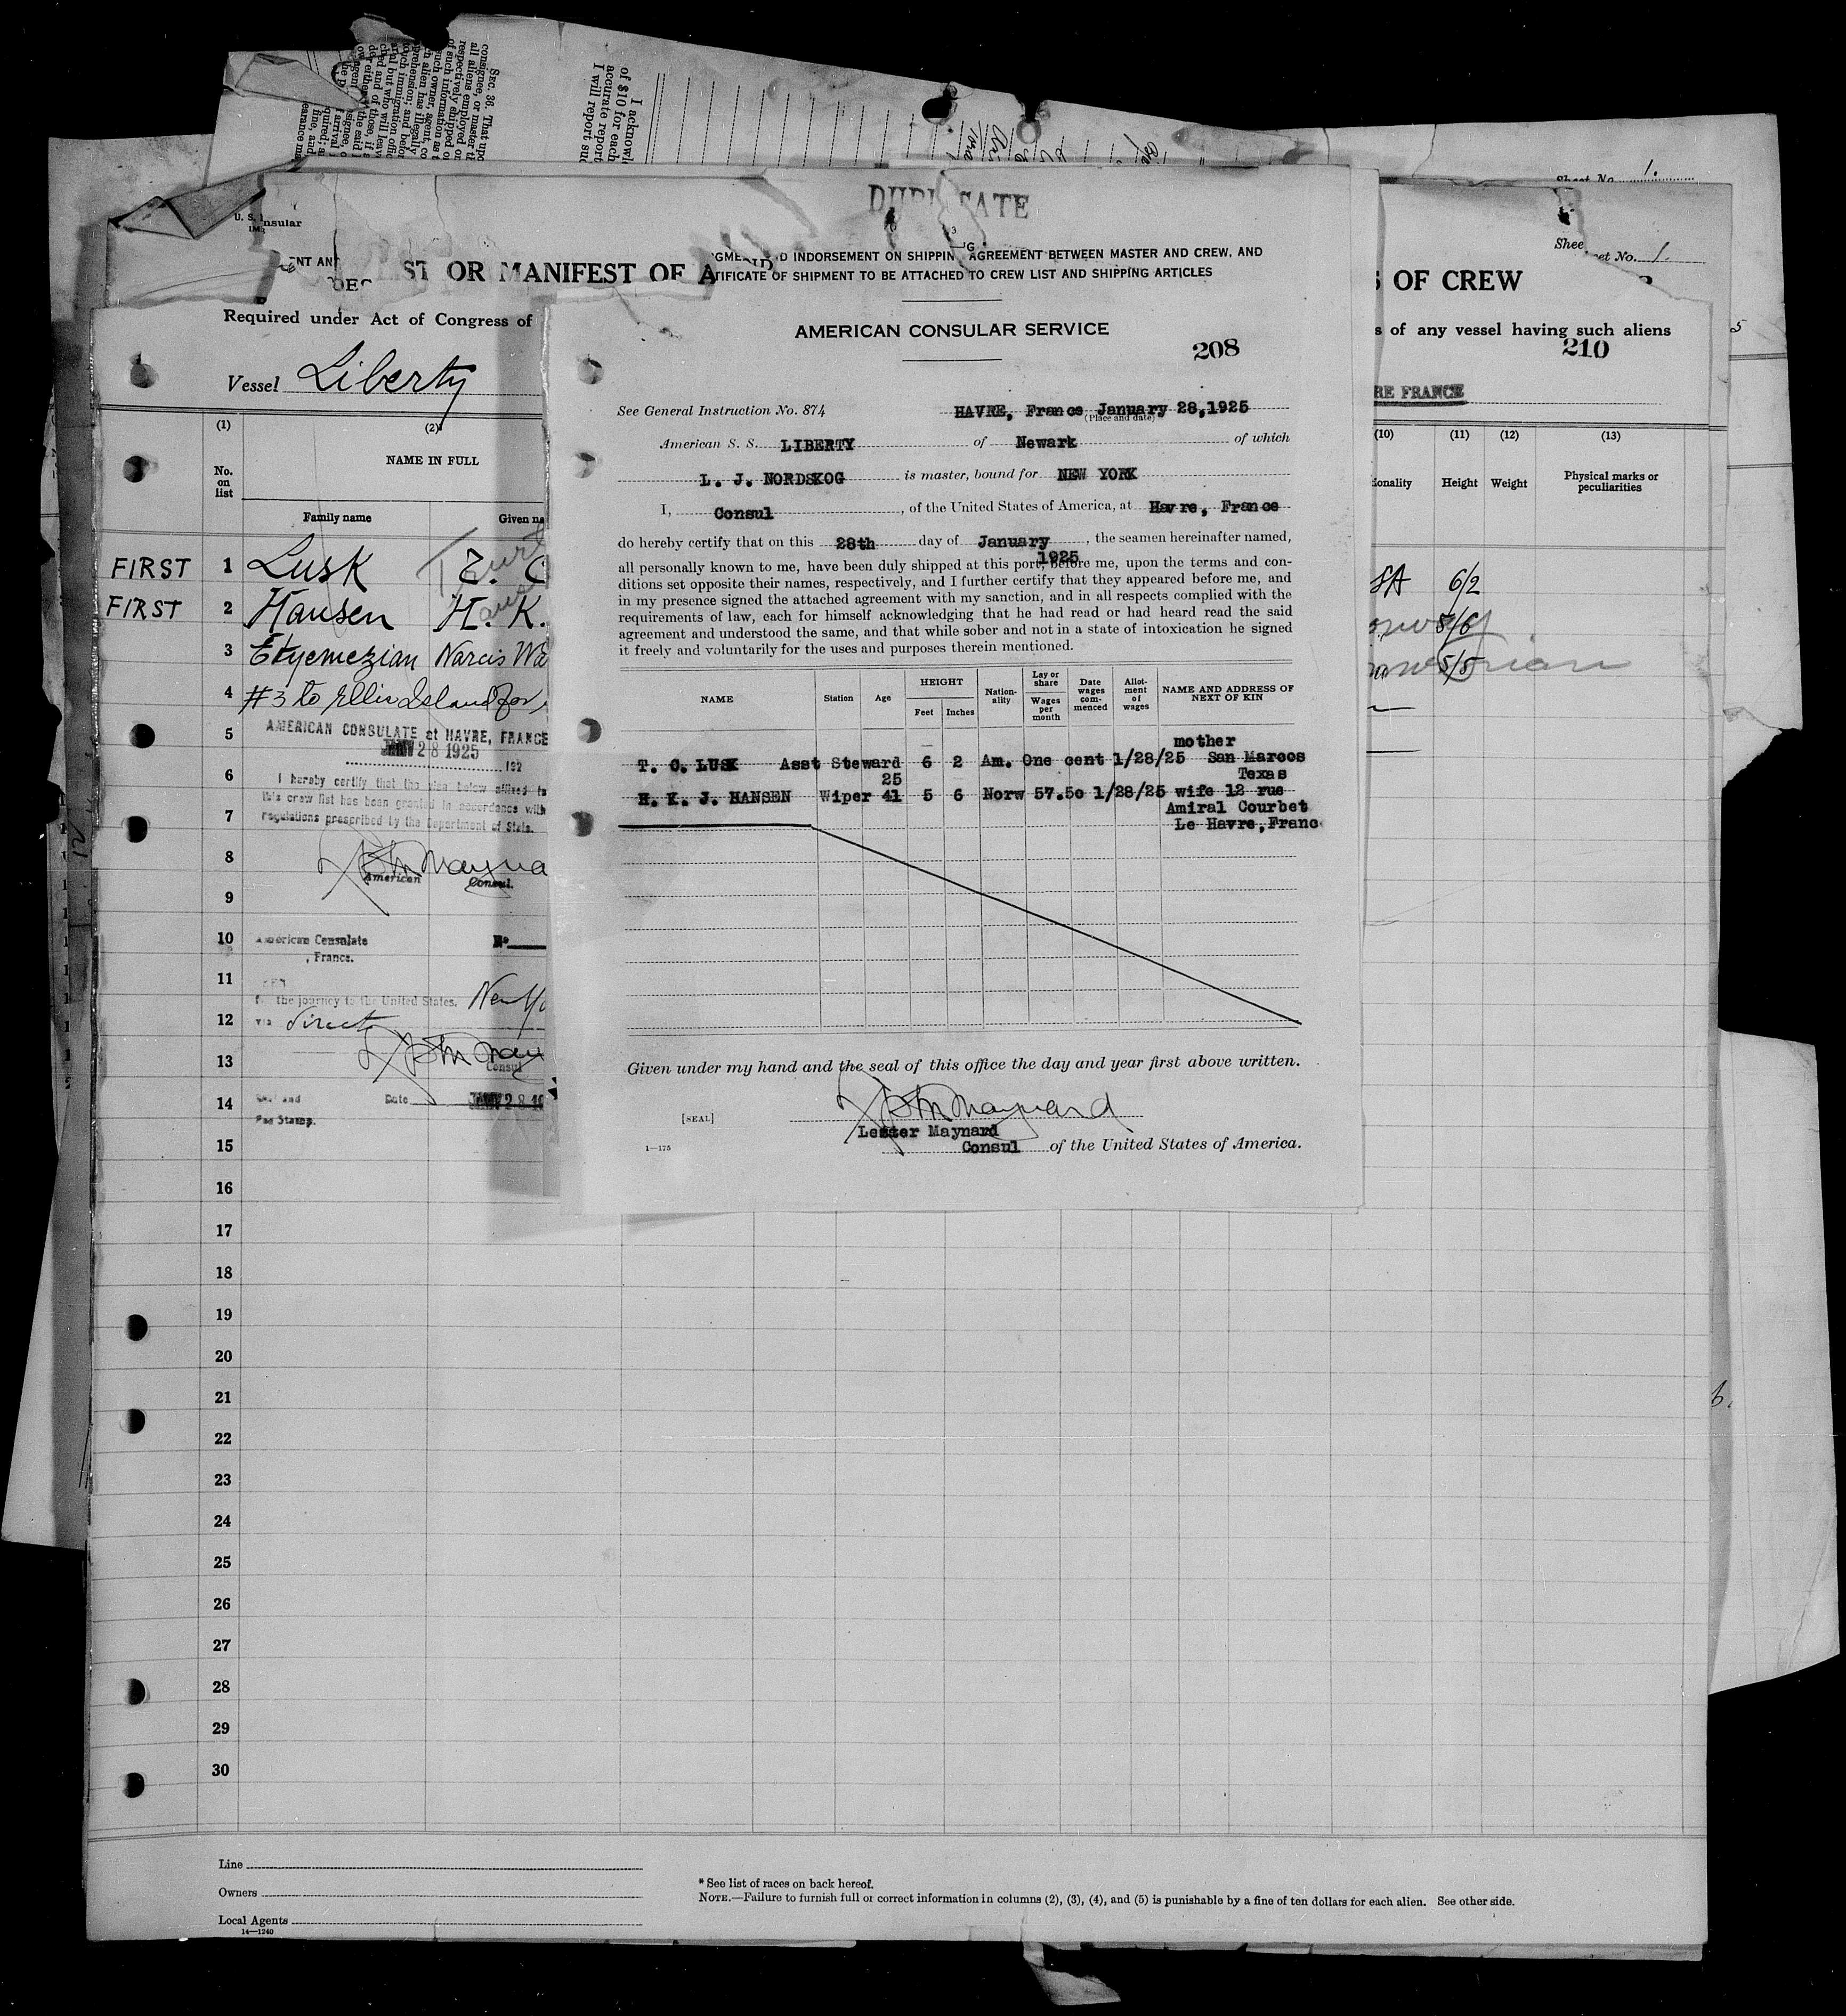 SEC. 36. That upo
consignee, or master
all aliens employed
respectively shipped o
of such information as
I acknowl
of $10 for each
accurate report
I will report suc
Sheet No. 1.
DUPLICATE
U. S.
nsular
Shee
eet No. 1.
ENT AN
GME
D INDORSEMENT ON SHIPPIN
AGREEMENT BETWEEN MASTER AND CREW, AND
TIFICATE OF SHIPMENT TO BE ATTACHED TO CREW LIST AND SHIPPING ARTICLES
ST OR MANIFEST OF A
S OF CREW
Required under Act of Congress of
s of any vessel having such aliens
210
RE FRANCE
Vessel Liberty
AMERICAN CONSULAR SERVICE
208
See General Instruction No. 874
HAVRE, France January 28,1925
(Place and date)
American S. S. LIBERTY of Newark of which
L. J. NORDSKOG is master, bound for NEW YORK
I, Consul, of the United States of America, at Havre, France
do hereby certify that on this 28th day of January, the seamen hereinafter named,
1925
all personally known to me, have been duly shipped at this port, before me, upon the terms and con-
ditions set opposite their names, respectively, and I further certify that they appeared before me, and
in my presence signed the attached agreement with my sanction, and in all respects complied with the
requirements of law, each for himself acknowledging that he had read or had heard read the said
agreement and understood the same, and that while sober and not in a state of intoxication he signed
it freely and voluntarily for the uses and purposes therein mentioned.
NAME Station Age HEIGHT Feet Inches Nation-ality Lay or share Wages per month Date wages com-menced Allot-ment of wages NAME AND ADDRESS OF NEXT OF KIN
mother
T. C. LUSK Asst Steward 6 2 Am. One cent 1/28/25 San Marcos
25 Texas
H. K. J. HANSEN Wiper 41 5 6 Norw 57.50 1/28/25 wife 12 rue
Amiral Courbet
Le Havre,Franc
Given under my hand and the seal of this office the day and year first above written.
[SEAL]
Lester Maynard
Consul of the United States of America.
1—175
(1) (2)
No. on list
NAME IN FULL
Family name Given na
(10) (11) (12) (13)
ionality Height Weight Physical marks or peculiarities
FIRST 1 Lusk T. C
SA 6/2
FIRST 2 Hansen H. K.
5/6
3 Ekyemezian Narcis
5/5
4 #3 to Ellis Island for
5 AMERICAN CONSULATE at HAVRE, FRANCE
28 1925
192
6 I hereby certify that the visa below affixed to
this crew list has been granted in accordance with
7 regulations prescribed by the Department of State.
8
American Consul.
9
10 American Consulate No
, France.
11
for the journey to the United States. New Yo
12 via direct
13 Consul
14 Seal and Date 28 19
Fee Stamp.
15
16
17
18
19
20
21
22
23
24
25
26
27
28
29
30
Line
Owners
Local Agents
14—1240
* See list of races on back hereof.
NOTE.—Failure to furnish full or correct information in columns (2), (3), (4), and (5) is punishable by a fine of ten dollars for each alien. See other side.